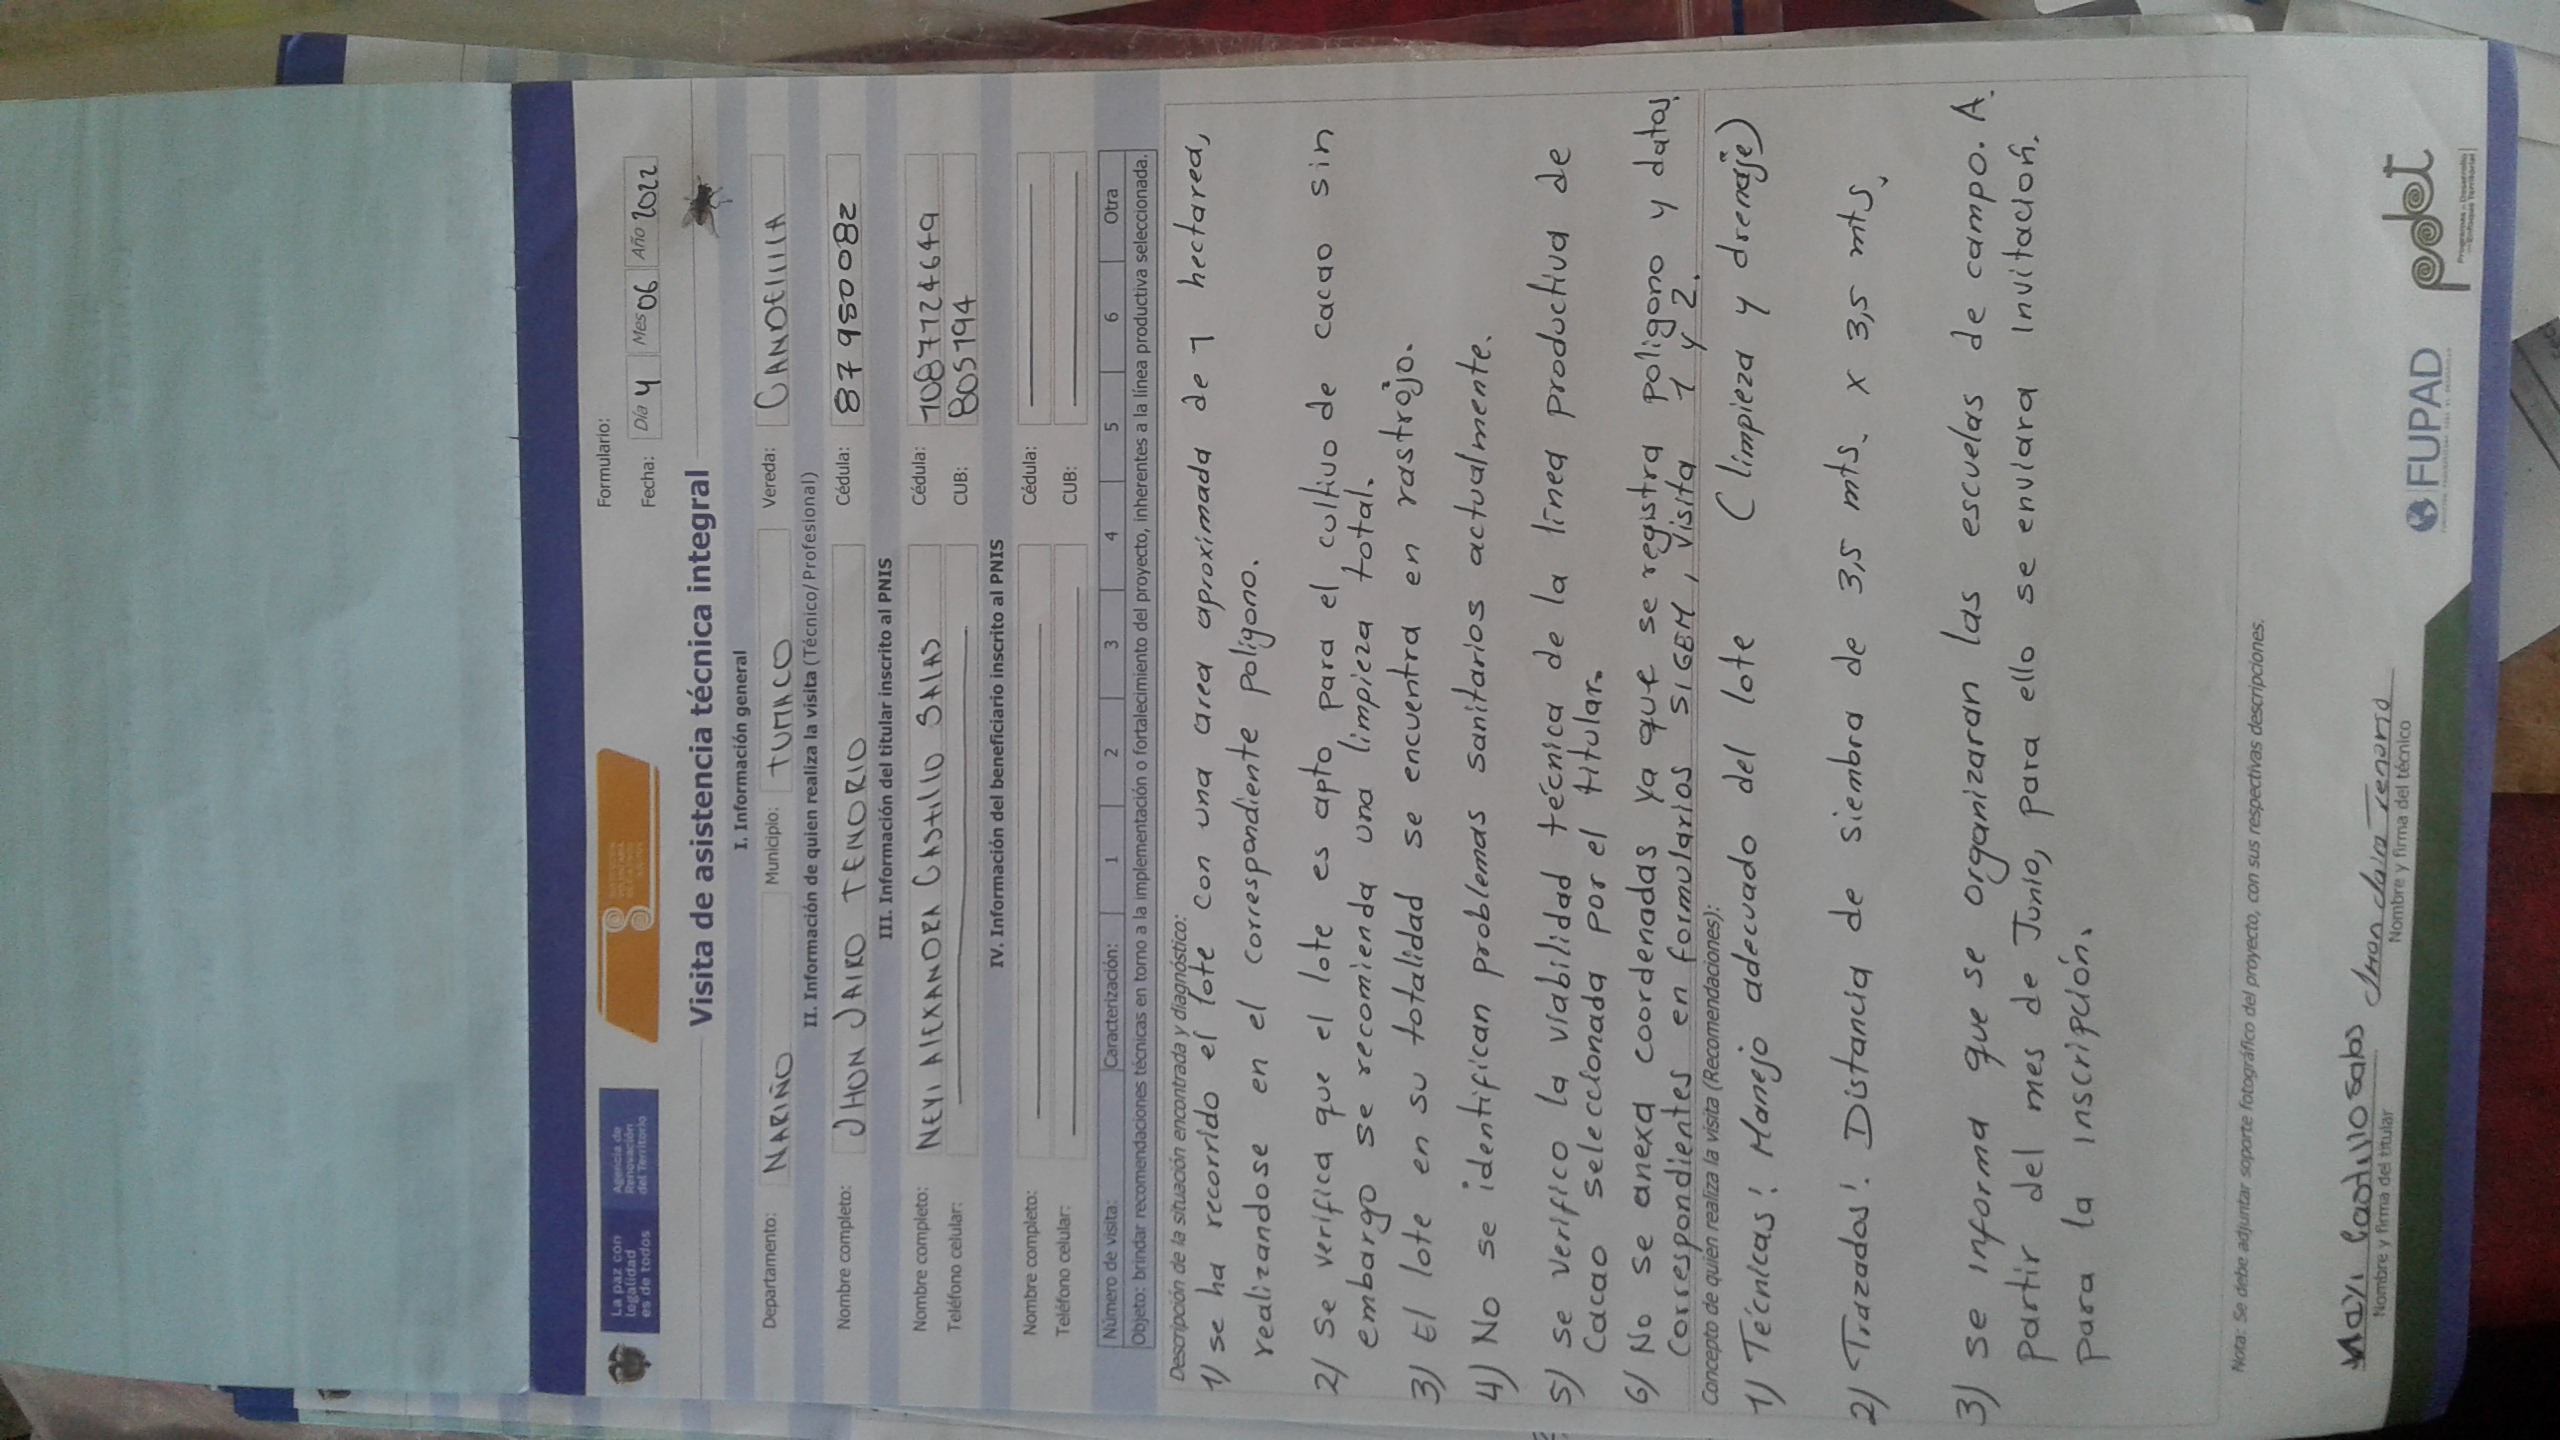 La paz con
legalidad
es de todos
Agencia de
Renovación
del Territorio
Formulario:
Fecha: Día 4 Mes 06 Año 2022
Visita de asistencia técnica integral
I. Información general
Departamento: NARIÑO Municipio: TUMACO Vereda: CANDELILLA
II. Información de quien realiza la visita (Técnico/Profesional)
Nombre completo: JHON JAIRO TENORIO Cédula: 87950082
III. Información del titular inscrito al PNIS
Nombre completo: NEYI ALEXANDRA CASTILLO SALAS Cédula: 1087124649
Teléfono celular: CUB: 805194
IV. Información del beneficiario inscrito al PNIS
Nombre completo: Cédula:
Teléfono celular: CUB:
Número de visita: Caracterización: 1 2 3 4 5 6 Otra
Objeto: brindar recomendaciones técnicas en torno a la implementación o fortalecimiento del proyecto, inherentes a la línea productiva seleccionada.
Descripción de la situación encontrada y diagnóstico:
1) se ha recorrido el lote con una area aproximada de 1 hectarea,
realizandose en el correspondiente poligono.
2) se verifica que el lote es apto para el cultivo de cacao sin
embargo se recomienda una limpieza total.
3) El lote en su totalidad se encuentra en rastrojo.
4) No se identifican problemas sanitarios actualmente.
5) se verifico la viabilidad técnica de la linea productiva de
Cacao seleccionada por el titular.
6) No se anexa coordenadas ya que se registra poligono y datos
correspondientes en formularios SIGEM, visita 1 y 2.
Concepto de quien realiza la visita (Recomendaciones):
1) Técnicas: Manejo adecuado del lote (limpieza y drenaje)
2) Trazados: Distancia de siembra de 3,5 mts. x 3,5 mts.
3) se informa que se organizaran las escuelas de campo. A
partir del mes de Junio, para ello se enviara invitación.
para la inscripción.
Nota: Se debe adjuntar soporte fotográfico del proyecto, con sus respectivas descripciones.
Neyi Castillo Salas
Nombre y firma del titular
Tenorio
Nombre y firma del técnico
FUPAD
pdet
Programas de Desarrollo
con Enfoque Territorial